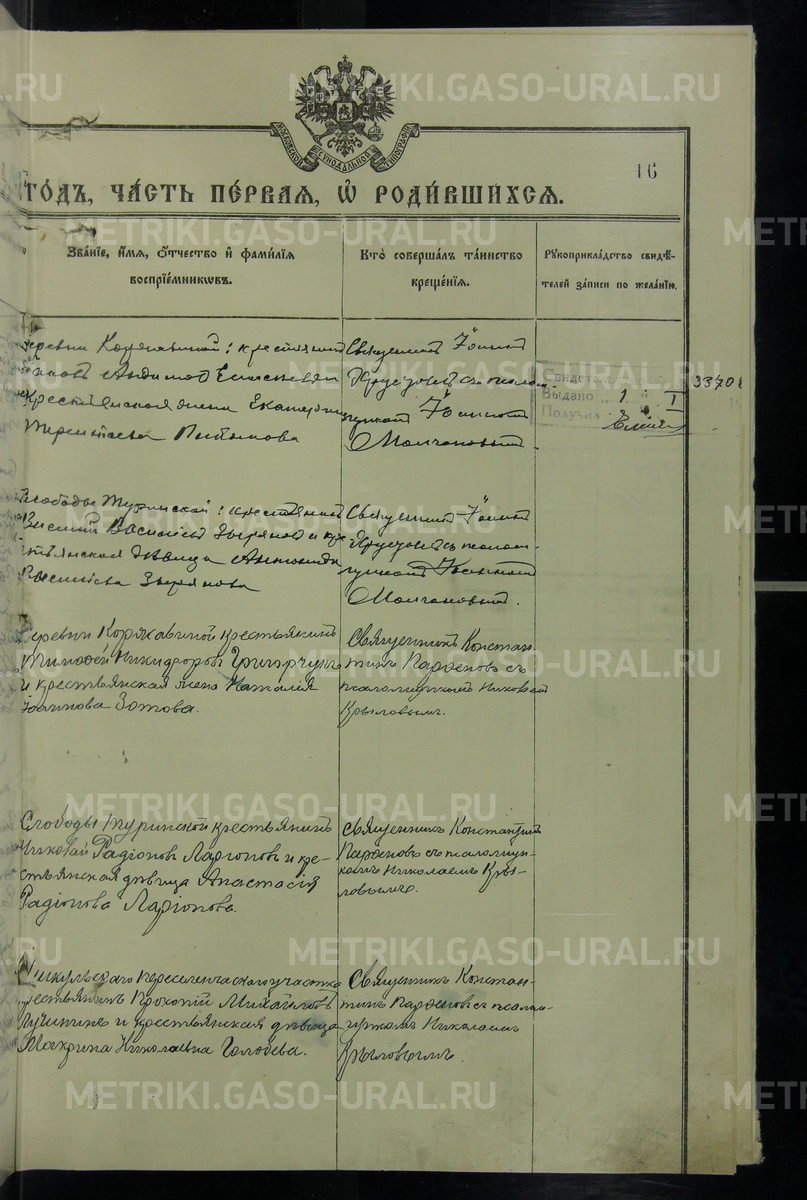 МОСКОВСКОЙ СѴНОДАЛЬНОЙ ТИПОГРАФІИ
16
ГО́ДЪ, ЧА́СТЬ ПЕ́РВАЯ, Ѽ РОДИ́ВШИХСЯ.
Зва́нїе, и́мя, ѻ́тчество и҆ фами́лїя воспрїе́мникѡвъ.
Кто̀ соверша́лъ та́инство креще́нїя.
Рꙋкоприкла́дство свидѣ́телей за́писи по жела́нїю.
крестьянинъ
Андимовъ Елисѣевъ
крестьянская жена Екатерина
Терентьева
Священникъ Іоаннъ
Хрусталевъ съ псалом-
щикомъ
Молчановымъ
Свидѣт
Выдано 1 I
Получил
3370
Слободы Туринской: крестьянинъ
Василій Васильевъ Зырянов и кре-
стьянская дѣвица Антонида
Васильева Зырянова
Священникъ Іоаннъ
съ псалом-
щикомъ
Молчановымъ.
Деревни Корякавиной крестьянинъ
Тимофей Никифоровъ
и крестьянская жена Наталія
Зотова.
Священникъ Констан-
тинъ Парѳеновъ съ
псаломщикомъ Николаемъ
Крыловымъ.
Слободы Туринской крестьянинъ
Николай Радіоновъ Ларіоновъ и кре-
стьянская дѣвица Анастасія
Радіонова Ларіонова.
Священникъ Константинъ
Парѳеновъ съ псаломщи-
комъ Николаемъ Кры-
ловымъ.
Переселенческаго участка
крестьянинъ Прокопій Михайловъ
Лучининъ и крестьянская дѣвица
Макрина Николаевна Голобева.
Священникъ Констан-
тинъ Парѳеновъ съ псалом-
щикомъ Николаемъ
Крыловымъ.
METRIKI.GASO-URAL.RU